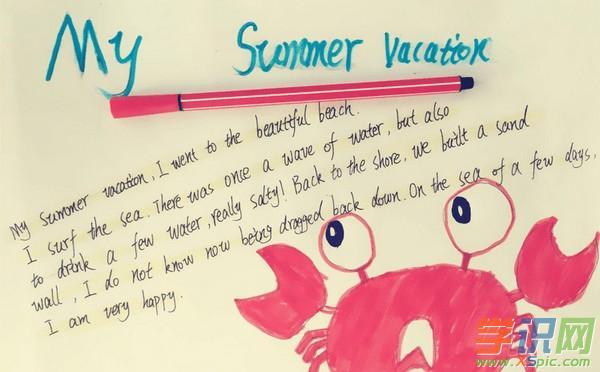 My Summer Vacation
My summer vacation, I went to the beautiful beach.
I surf the sea. There was once a wave of water, but also
to drink a few water, really salty! Back to the shore, we built a sand
wall, I do not know now being dragged back down. On the sea of a few days,
I am very happy.
学识网
www.XSpic.com